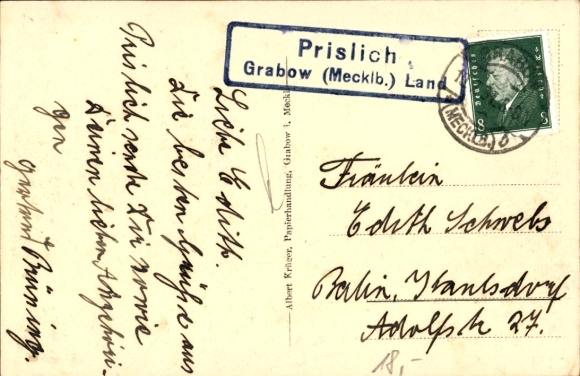 Prislich
Grabow (Mecklb.) Land
Deutsches Reich
8 8
GRABOW
(MECKLB.)
Liebe Edith.
Die besten Grüße aus
Prislich sendet Dir sowie
Deinen lieben Angehöri-
gen
Gertrud Brüning.
Albert Krüger, Papierhandlung, Grabow i. Meckl.
Fräulein
Edith Schwebs
Berlin, Mahlsdorf
Adolfstr 27.
18,-